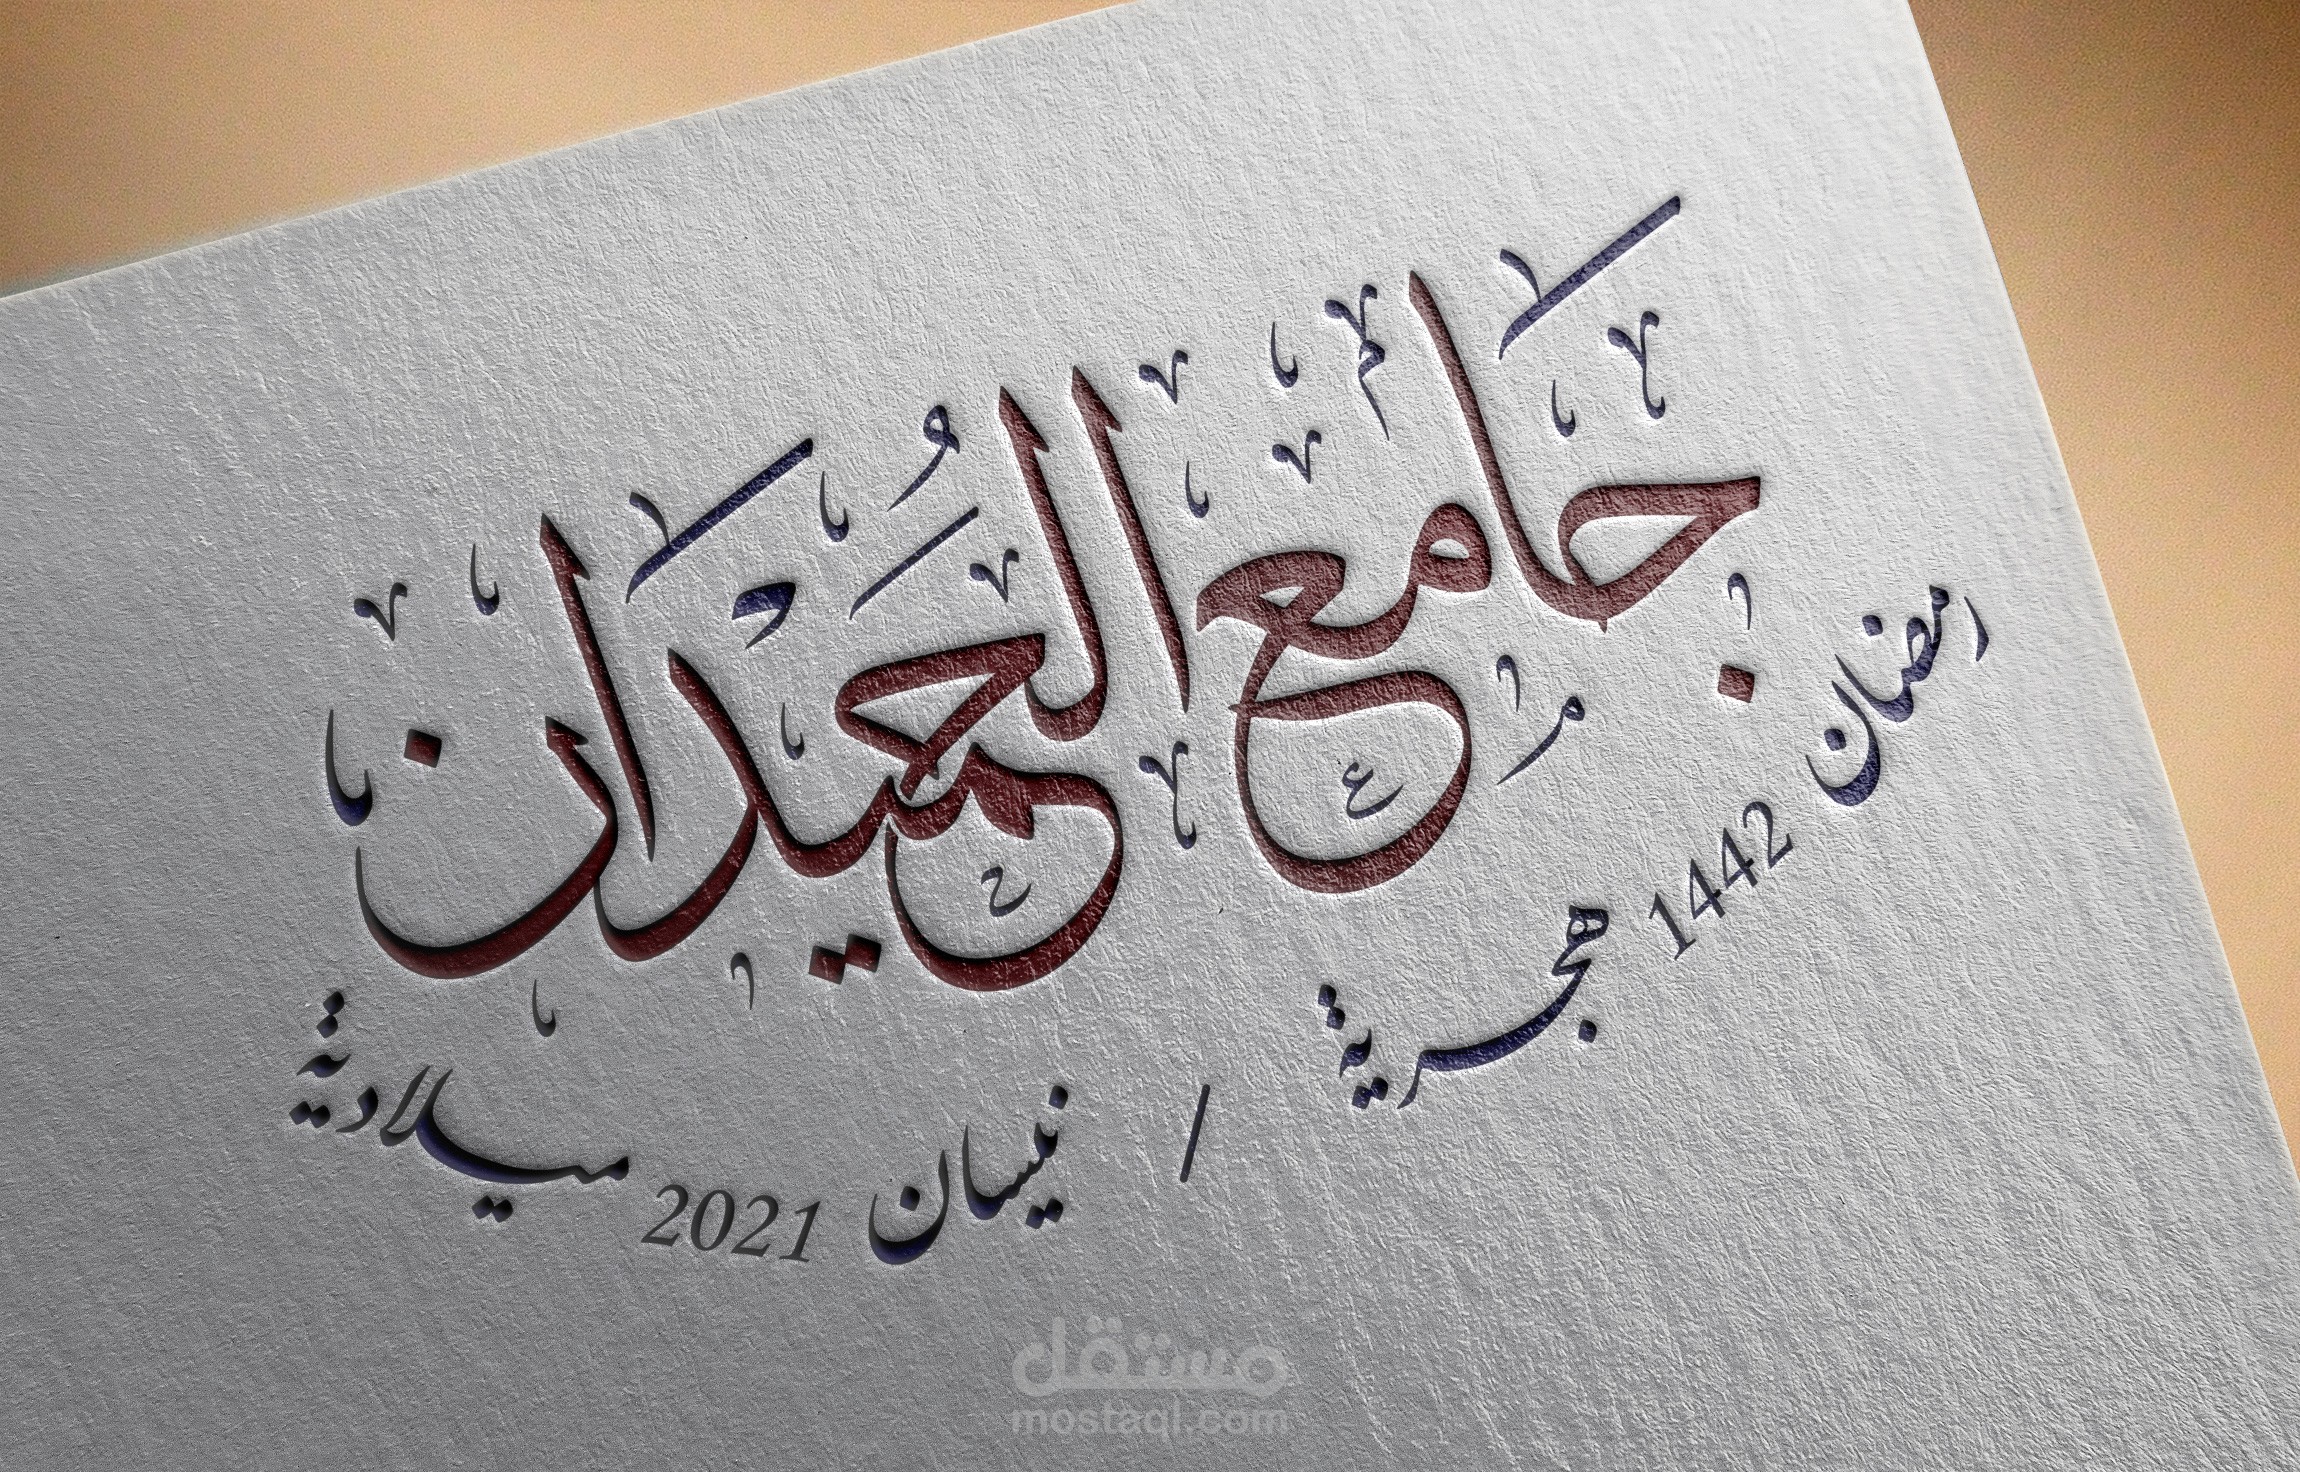 جَامع الحُمَيْدَان
رمضان 1442 هجرية / نيسان 2021 ميلادية
مستقل
mostaql.com